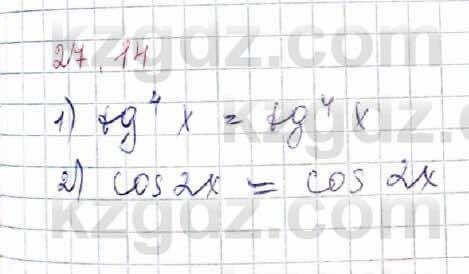 27.14
1) tg⁴ x = tg⁴ x
2) cos 2x = cos 2x
kzgdz.com
kzgdz.com
kzgdz.com